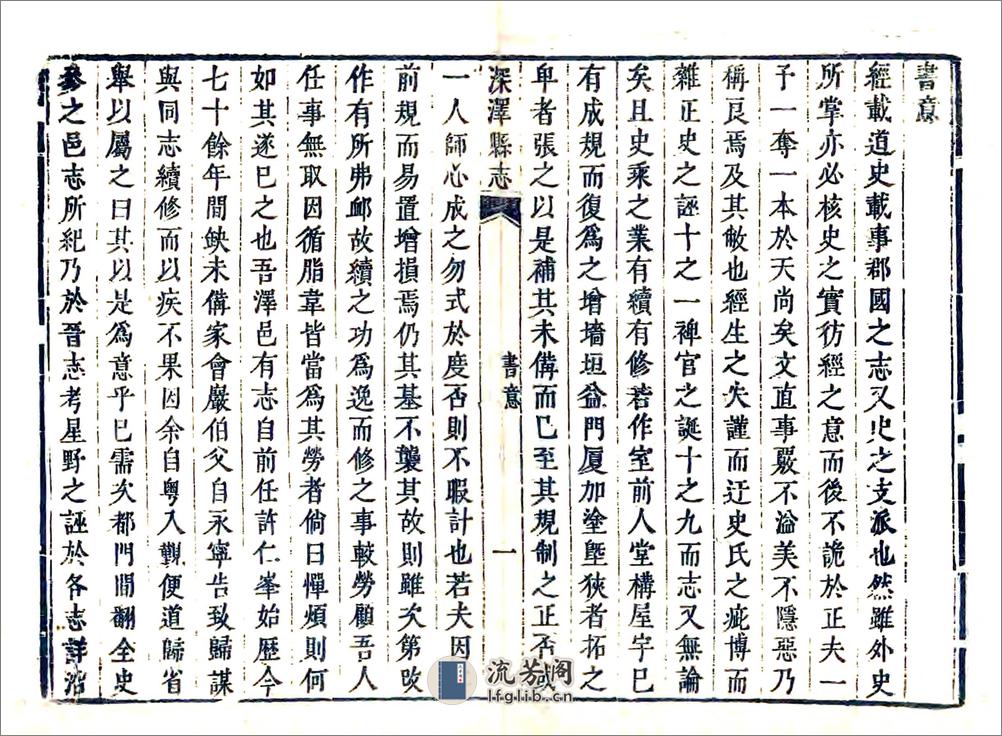 書意
經載道史載事郡國之志又史之支派也然雖外史
所掌亦必核史之實彷經之意而後不詭於正夫一
予一奪一本於天尚矣文直事嚴不溢美不隱惡乃
稱良焉及其敝也經生之失謹而迂史氏之疵博而
雜正史之誣十之一稗官之誕十之九而志又無論
矣且史乘之業有續有修若作室前人堂構屋宇已
有成規而復爲之增墻垣益門厦加塗塈狹者拓之
卑者張之以是補其未備而已至其規制之正否或
深澤縣志 書意 一
一人師心成之勿式於度否則不暇計也若夫因
前規而易置增損焉仍其基不襲其故則雖次第改
作有所弗邮故續之功爲逸而修之事較勞顧吾人
任事無取因循脂韋皆當爲其勞者倘曰憚煩則何
如其遂已之也吾澤邑有志自前任許仁峯始歷今
七十餘年間缺未備家會嚴伯父自永寧告致歸謀
與同志續修而以疾不果因余自粵入覲便道歸省
舉以屬之曰其以是爲意乎已需次都門間翻全史
參之邑志所紀乃於晉志考星野之誣於各志詳沿
流芳阁
lfglib.cn